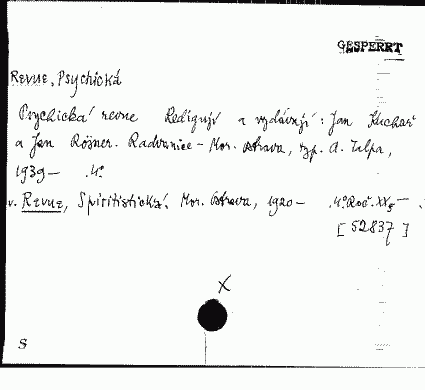 GESPERRT
REVUE, Psychická
Psychická revue Redigují a vydávají: Jan Kuchař
a Jan Rösner. Radvanice - Mor. Ostrava, typ. A. Tulpa,
1939 - 4°
v. REVUE, Spiritistická. Mor. Ostrava, 1920 - 4° Roč. XX,
[52837]
X
S